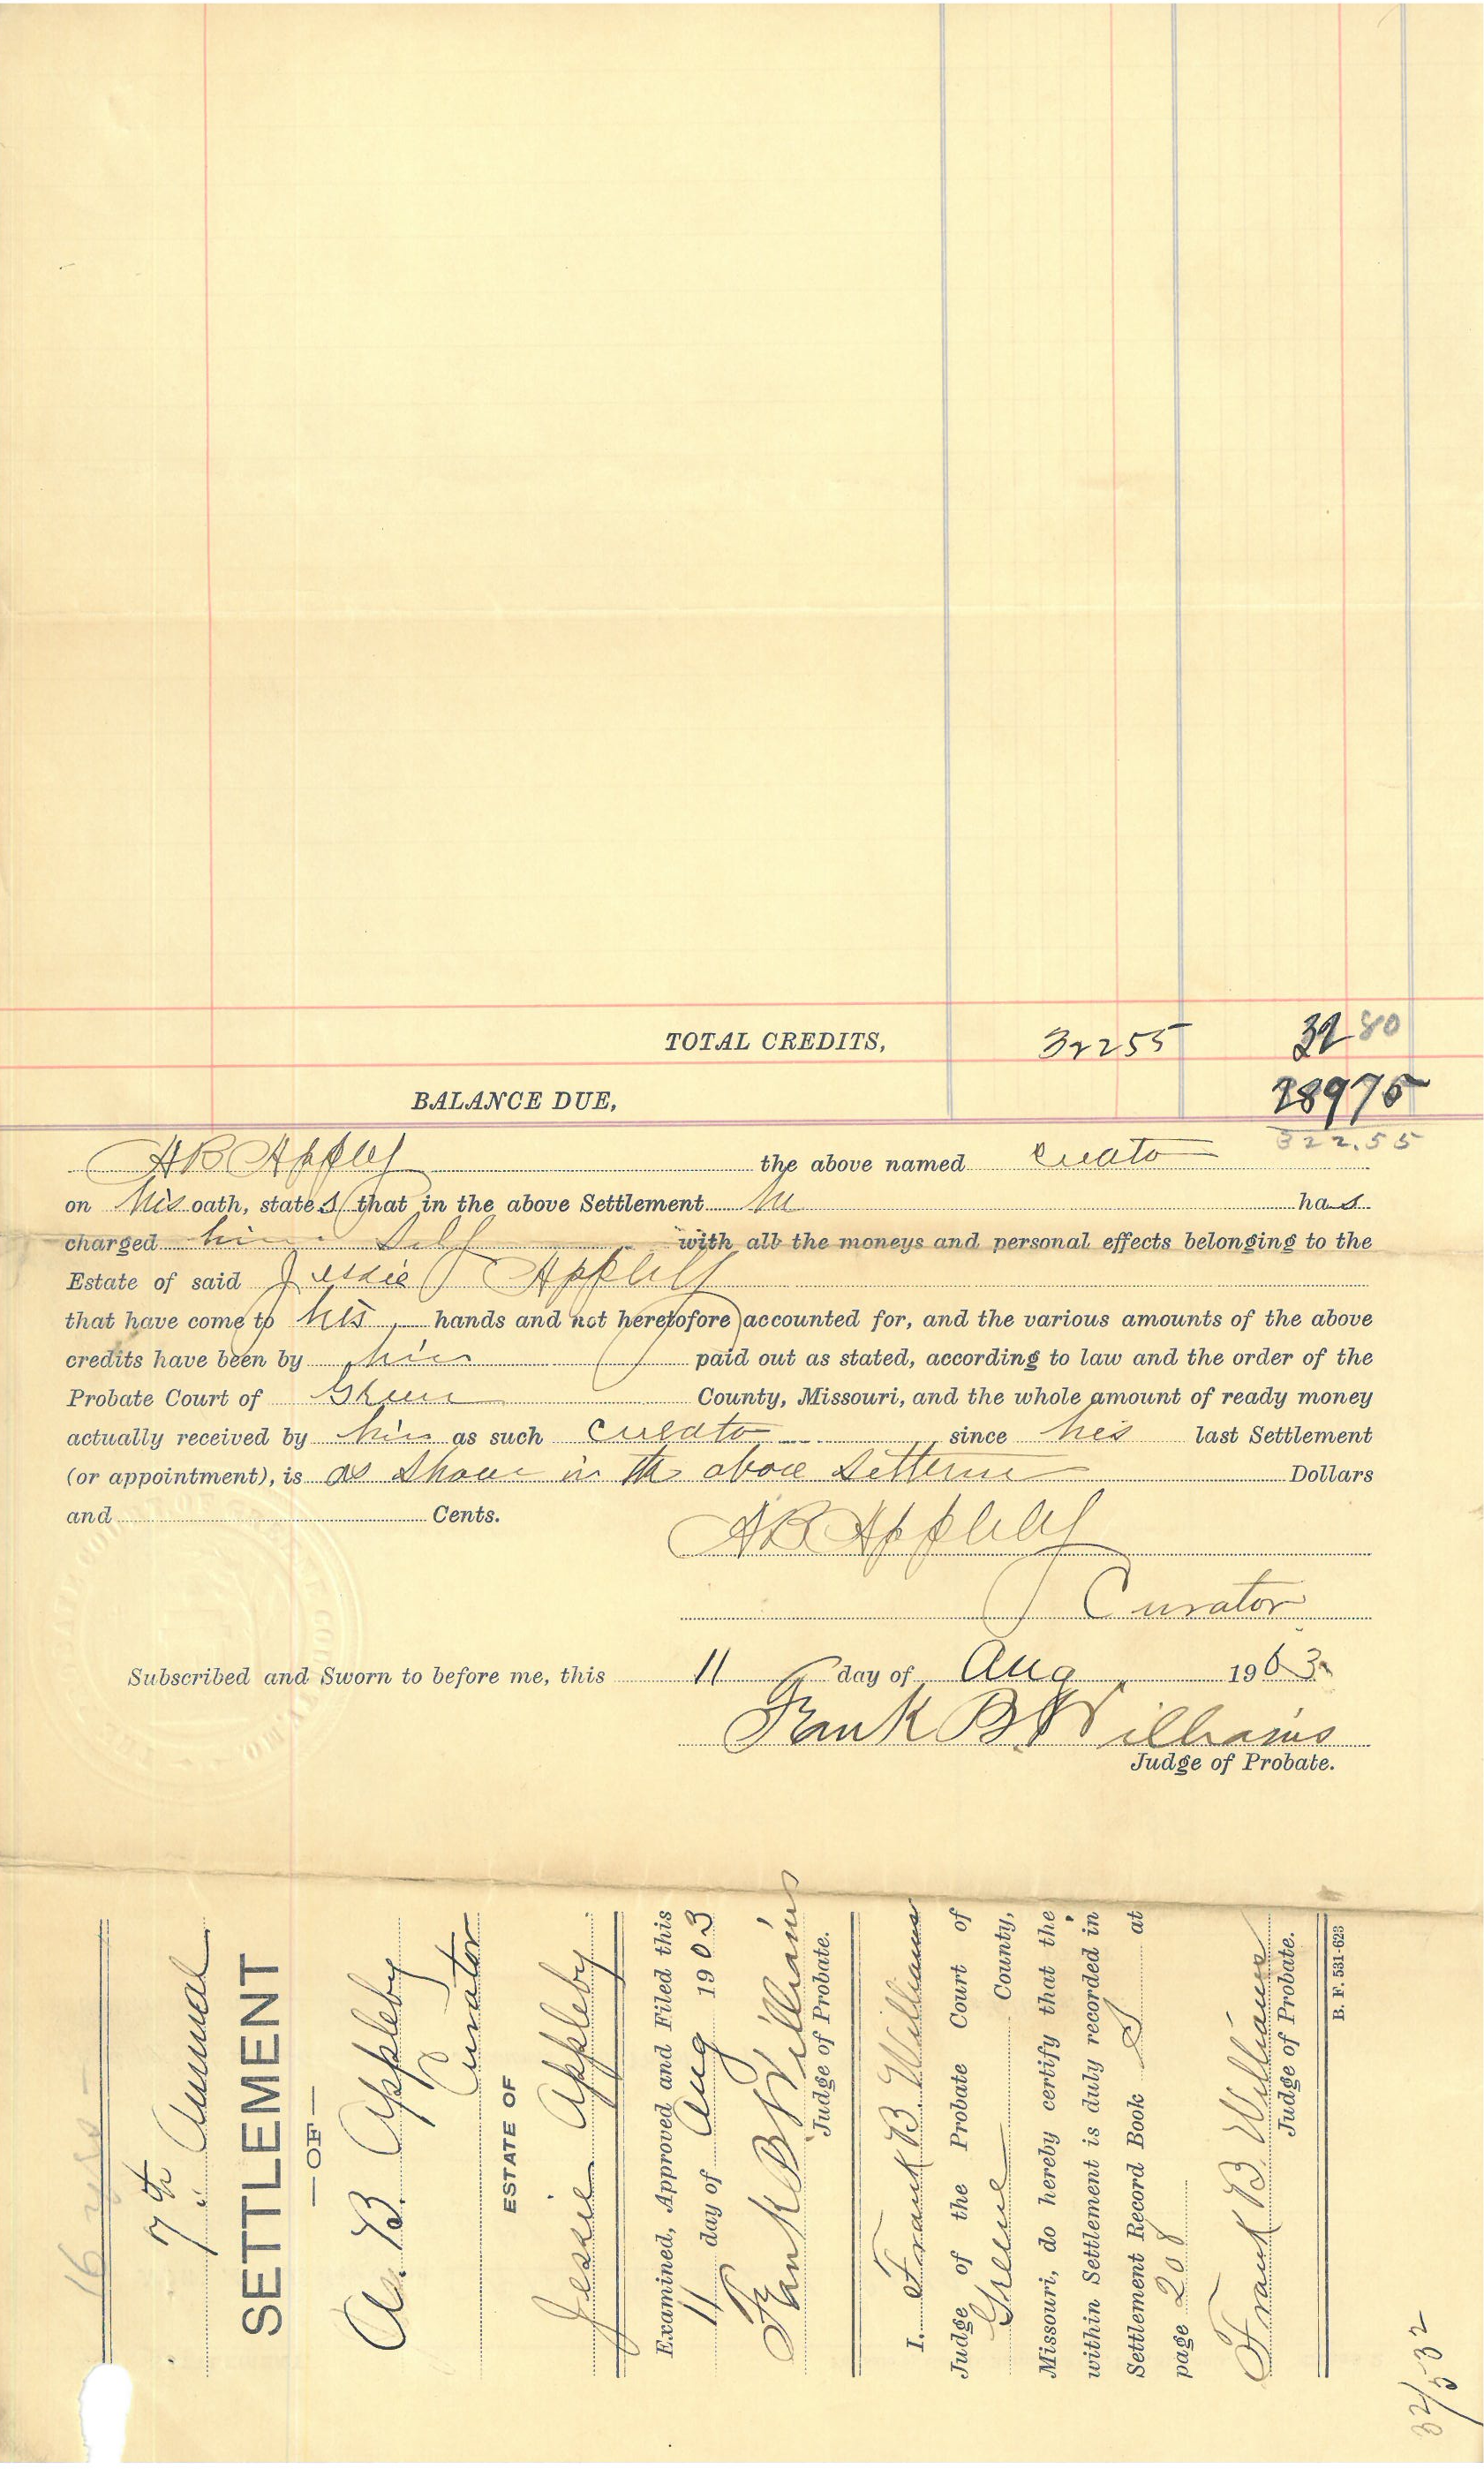 TOTAL CREDITS, 32255 32 80
BALANCE DUE, 28975
322.55
A B Appleby the above named Curator
on his oath, states that in the above Settlement he has
charged him self with all the moneys and personal effects belonging to the
Estate of said Jessie Appleby
that have come to his hands and not heretofore accounted for, and the various amounts of the above
credits have been by him paid out as stated, according to law and the order of the
Probate Court of Greene County, Missouri, and the whole amount of ready money
actually received by him as such Curator since his last Settlement
(or appointment), is as shown in the above Settlement Dollars
and Cents.
A B Appleby
Curator
Subscribed and Sworn to before me, this 11 day of Aug 1903.
Frank B. Williams
Judge of Probate.
7th Annual
SETTLEMENT
—OF—
A. B. Appleby
Curator
ESTATE OF
Jessie Appleby
Examined, Approved and Filed this
11 day of Aug 1903
Frank B Williams
Judge of Probate.
I, Frank B. Williams
Judge of the Probate Court of
Greene County,
Missouri, do hereby certify that the
within Settlement is duly recorded in
Settlement Record Book S at
page 208
Frank B. Williams
Judge of Probate.
B. F. 531-623